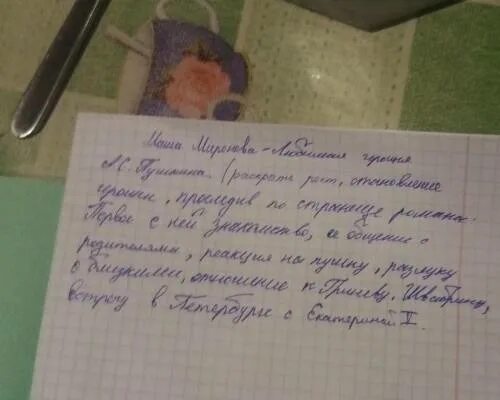 Маша Миронова - Любимая героиня
А.С. Пушкина. (раскрыть рост, становление
героини, проследив по странице романа.
Первое с ней знакомство, ее общение с
родителями, реакция на пушку, разлуку
с близкими, отношение к Гриневу, Швабрину,
встречу в Петербурге с Екатериной II.